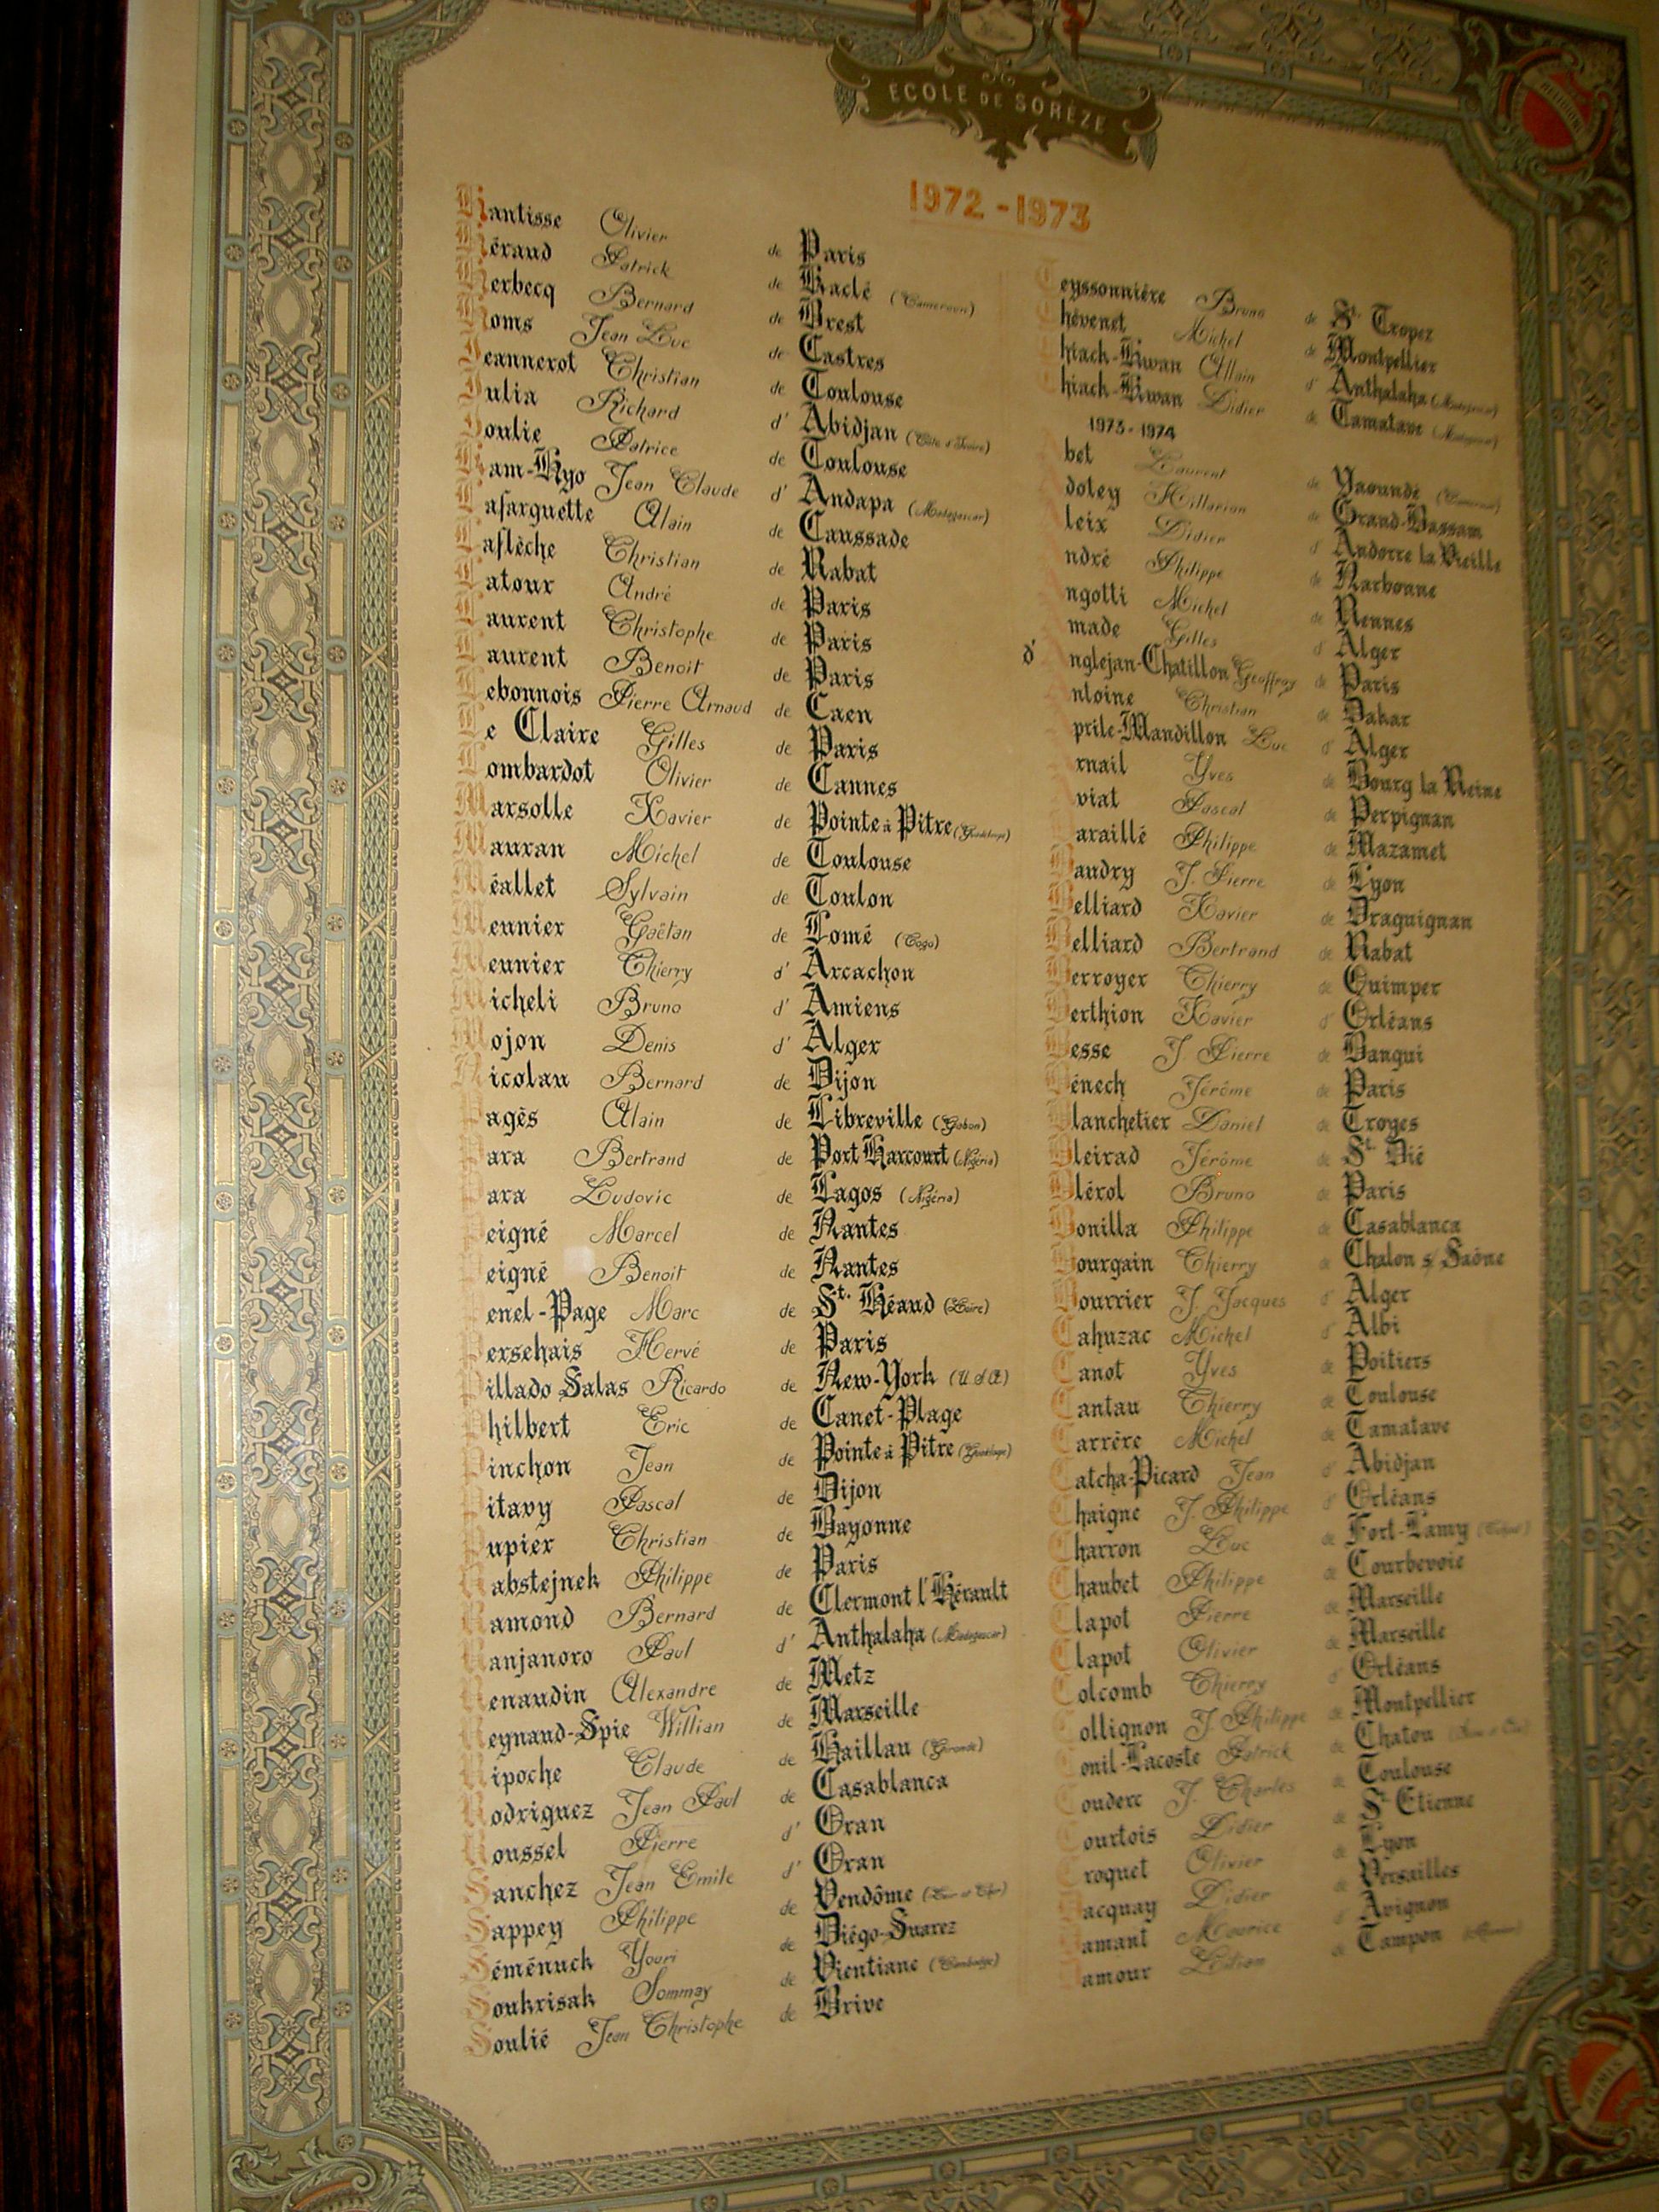 ECOLE DE SORÈZE
1972-1973
Hantisse Olivier de Paris
Héraud Patrick de Baclé (Cameroun)
Herbecq Bernard de Brest
Homs Jean Luc de Castres
Jeannerot Christian de Toulouse
Julia Richard d' Abidjan (Côte d'Ivoire)
Joulie Patrice de Toulouse
Kam-Hyo Jean Claude d' Andapa (Madagascar)
Lafarguette Alain de Caussade
Laflèche Christian de Rabat
Latour André de Paris
Laurent Christophe de Paris
Laurent Benoit de Paris
Lebonnois Pierre Arnaud de Caen
Le Claire Gilles de Paris
Lombardot Olivier de Cannes
Marsolle Xavier de Pointe à Pitre (Guadeloupe)
Mauran Michel de Toulouse
Méallet Sylvain de Toulon
Meunier Gaëtan de Lomé (Togo)
Meunier Thierry d' Arcachon
Micheli Bruno d' Amiens
Mojon Denis d' Alger
Nicolau Bernard de Dijon
Pagès Alain de Libreville (Gabon)
Para Bertrand de Port Harcourt (Nigéria)
Para Ludovic de Lagos (Nigéria)
Peigné Marcel de Nantes
Peigné Benoit de Nantes
Penel-Page Marc de St. Héand (Loire)
Persehais Hervé de Paris
Pillado Salas Ricardo de New-York (U.S.A)
Philbert Eric de Canet-Plage
Pinchon Jean de Pointe à Pitre (Guadeloupe)
Pitavy Pascal de Dijon
Pupier Christian de Bayonne
Rabstejnek Philippe de Paris
Ramond Bernard de Clermont l'Hérault
Ranjanoro Paul d' Anthalaha (Madagascar)
Renaudin Alexandre de Metz
Reynaud-Spie Willian de Marseille
Ripoche Claude de Haillau (Gironde)
Rodriguez Jean Paul de Casablanca
Roussel Pierre d' Oran
Sanchez Jean Emile d' Oran
Sappey Philippe de Vendôme (Loir et Cher)
Séménuck Youri de Diégo-Suarez
Soukrisak Sommay de Vientiane (Cambodge)
Soulié Jean Christophe de Brive
Teyssonnière Bruno de St Tropez
Thévenet Michel de Montpellier
Thiack-Kwan Allain d' Anthalaha (Madagascar)
Thiack-Kwan Didier de Tamatave (Madagascar)
1973-1974
Abet Laurent de Yaoundé (Cameroun)
Adoley Hillarion de Grand-Bassam
Aleix Didier d' Andorre la Vieille
André Philippe de Narbonne
Angotti Michel de Rennes
Amade Gilles d' Alger
d' Anglejan-Chatillon Geoffroy de Paris
Antoine Christian de Dakar
Aprile-Mandillon Luc d' Alger
Arnail Yves de Bourg la Reine
Aviat Pascal de Perpignan
Baraillé Philippe de Mazamet
Baudry J. Pierre de Lyon
Belliard Xavier de Draguignan
Belliard Bertrand de Rabat
Berroyer Thierry de Quimper
Berthion Xavier d' Orléans
Besse J Pierre de Bangui
Bénech Jérôme de Paris
Blanchetier Daniel de Troyes
Bleirad Jérôme de St Dié
Blérol Bruno de Paris
Bonilla Philippe de Casablanca
Bourgain Thierry de Chalon s/ Saône
Bourrier J. Jacques d' Alger
Cahuzac Michel d' Albi
Canot Yves de Poitiers
Cantau Thierry de Toulouse
Carrère Michel de Tamatave
Catcha-Picard Jean d' Abidjan
Chaigne J. Philippe d' Orléans
Charron Luc de Fort-Lamy (Tchad)
Chaubet Philippe de Courbevoie
Clapot Pierre de Marseille
Clapot Olivier de Marseille
Colcomb Thierry d' Orléans
Collignon J. Philippe de Montpellier
Conil-Lacoste Patrick de Chatou
Couderc J. Charles de Toulouse
Courtois Didier de St Etienne
Croquet Olivier de Lyon
Dacquay Didier de Versailles
Damant Maurice d' Avignon
Damour de Tampon